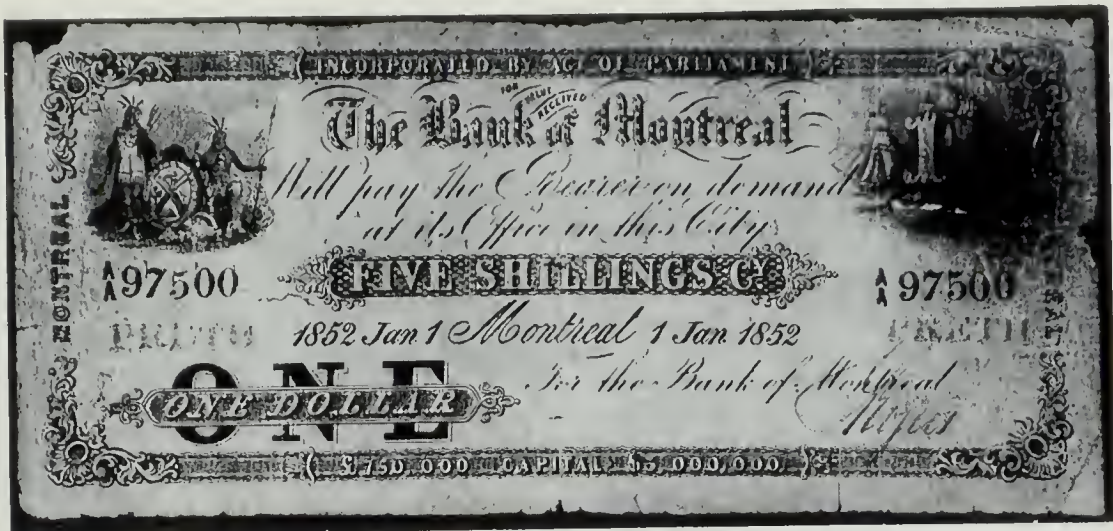 INCORPORATED BY ACT OF PARLIAMENT
FOR VALUE RECEIVED
The Bank of Montreal
Will pay the Bearer on demand
at its Office in this City
MONTREAL
A/A 97500 FIVE SHILLINGS CY A/A 97500
1852 Jan 1 Montreal 1 Jan 1852
ONE
ONE DOLLAR
For the Bank of Montreal
£750,000 CAPITAL $3,000,000